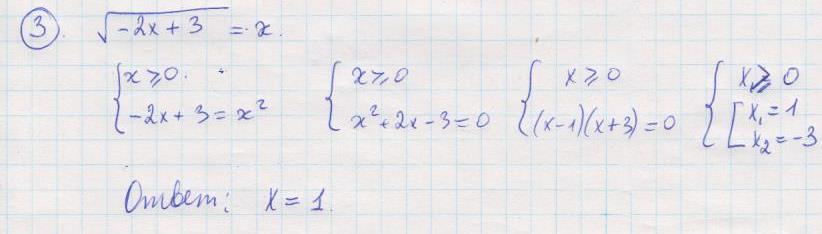 3. √(-2x + 3) = x.
{ x ⩾ 0. -2x + 3 = x² { x ⩾ 0 x² + 2x - 3 = 0 { x ⩾ 0 (x-1)(x+3) = 0 { x ⩾ 0 [ x₁ = 1 x₂ = -3
Ответ: x = 1.